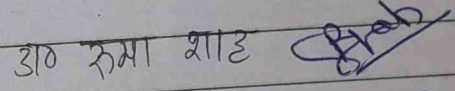 डा० रूमा शाह